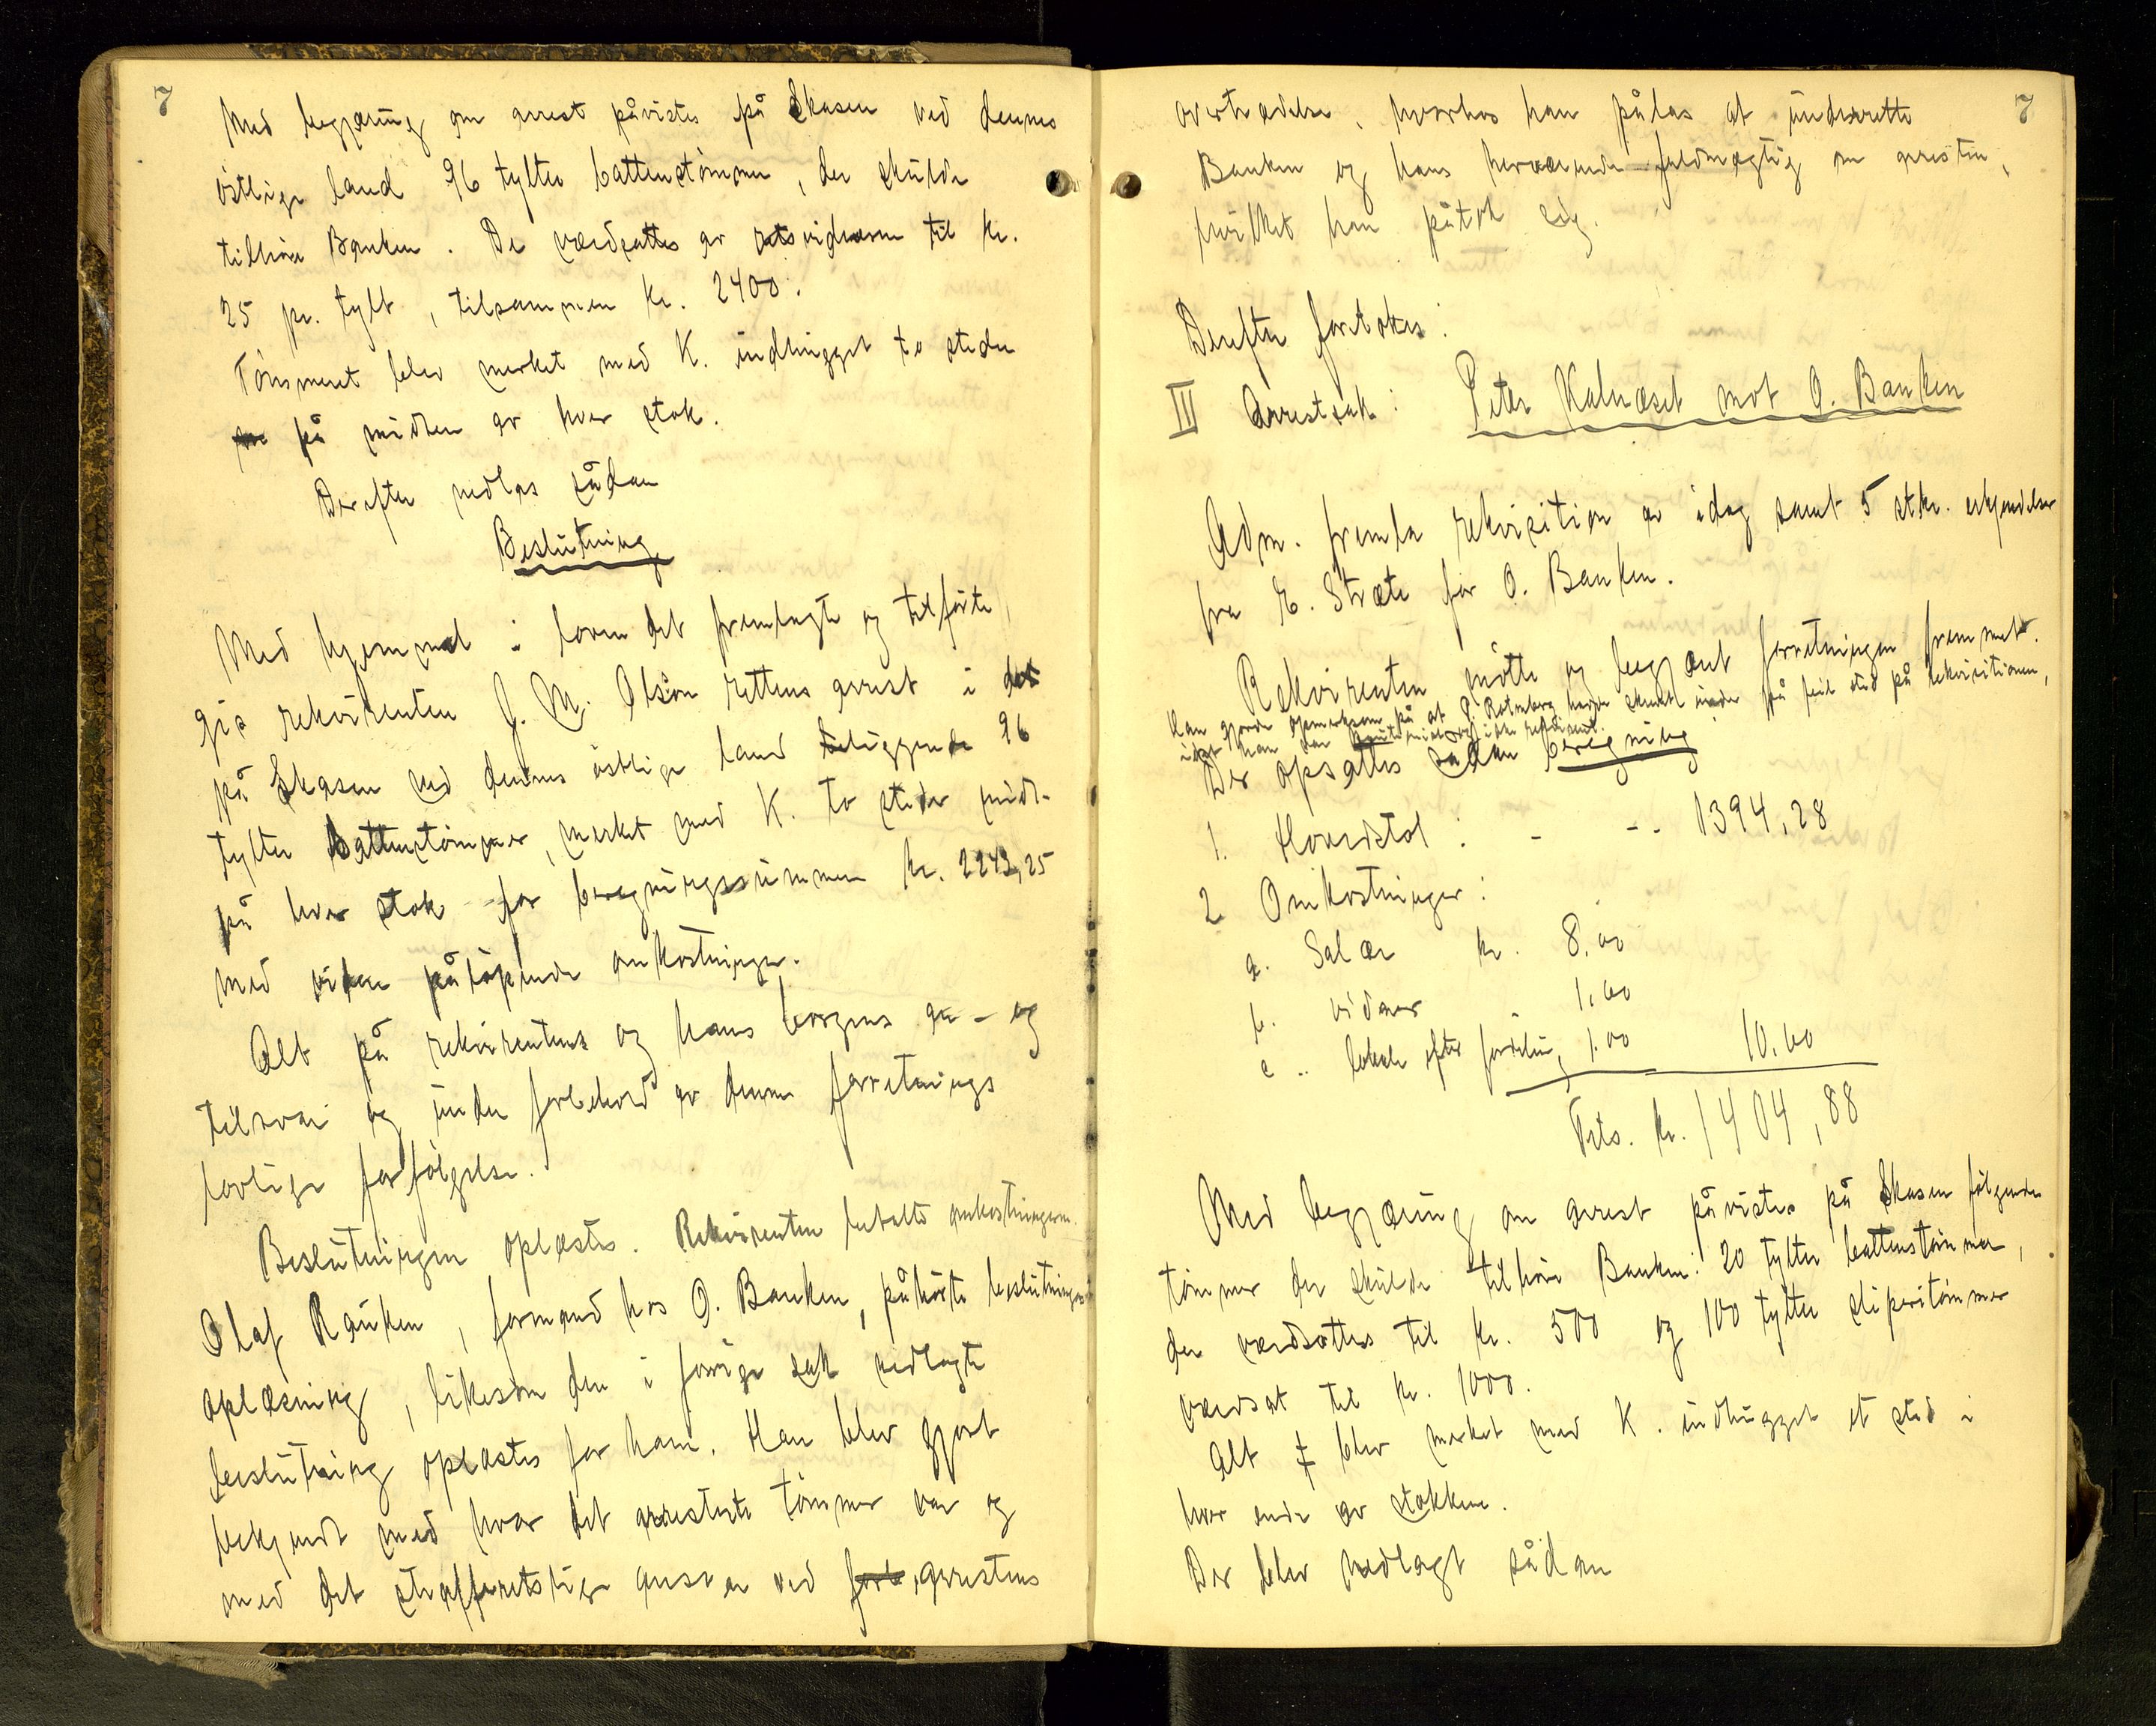 7
Med begjæring om arrest påvistes på Skasen ved dennes
östlige land 96 tylter battenstömmer, der skulde
tilhöre Banken. De værdsattes av retsvidnerne til kr.
25 pr. tylt, tilsammen kr. 2400.
Tömmeret blev merket med K. indhugget to steder
på midten av hver stok.
Derefter nedlas sådan
Beslutning
Med hjemmel i loven det fremlagte og tilförte
gis rekvirenten J. M. Olsön rettens arrest i det
på Skasen ved dennes östlige land beliggende 96
tylter battenstömmer, merket med K. to steder midt
på hver stok for beregningssummen kr. 2243,25
med videre påløpende omkostninger.
Alt på rekvirentens og hans borgens an- og
tilsvar og under forbehold av denne forretnings
lovlige forfölgelse.
Beslutningen oplæstes. Rekvirenten betalte omkostningerne.
Olaf Rauken, formand hos O. Banken, påhörte beslutningens
oplæsning, likesom den i forrige sak nedlagte
beslutning oplæstes for ham. Han blev gjort
bekjendt med hvor det arresterte tömmer var og
med det strafferetslige ansvar ved arrestens
7
overtrædelse, hvorhos han pålas at underrette
Banken og hans herværende fuldmægtig om arresten,
hvilket han påtok sig.
Derefter foretokes:
III Arrestsak: Peter Kalnæset mot O. Banken
Adm. fremla rekvisition av idag samt 5 stkr. erkjendelser
fra E. Stræte for O. Banken.
Rekvirenten mötte og begjært forretningen fremmet.
Han gjorde opmerksom på at J. Rotnberg hadde skrevet under på feil sted på rekvisitionen,
idet han var ikke rekvirent.
Der opsattes sådan beregning
1. Hovedstol: - -- 1394,28
2 Omkostninger:
a. Salær kr. 8.00
b. vidner " 1.60
c .. lokale efter fordeling 1.00 10.60
Tils. kr. 1404,88
Med begjæring om arrest påvistes på Skasen fölgende
tömmer der skulde tilhöre Banken: 20 tylter battenstömmer,
der værdsattes til kr. 500 og 100 tylter sliperitömmer
værdsat til kr. 1000.
Alt blev merket med K. indhugget et sted i
hver ende av stokkene.
Der blev nedlagt sådan